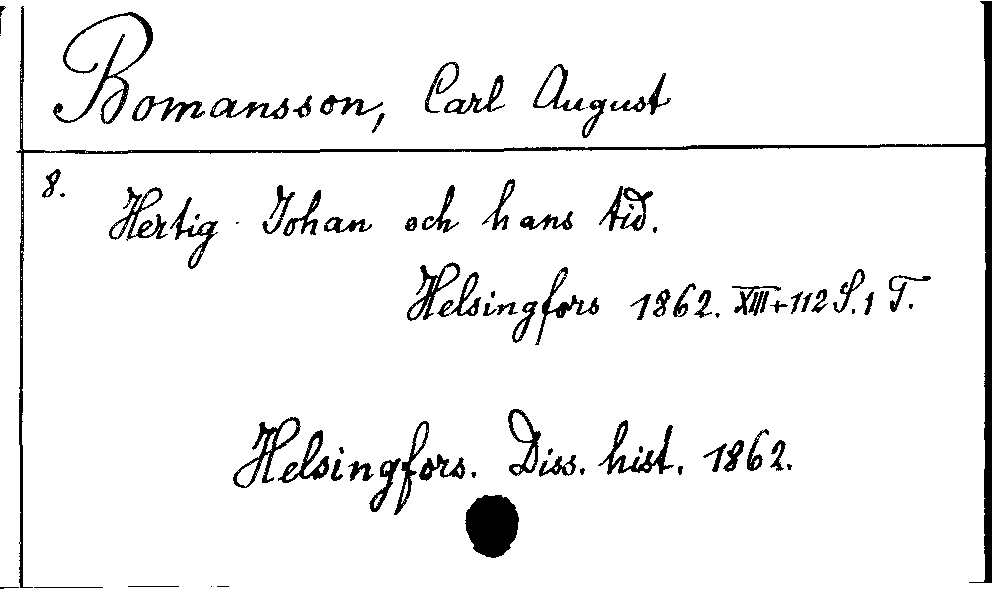 Bomansson, Carl August
8.
Hertig Johan och hans tid.
Helsingfors 1862. XIII+112 S. 1 T.
Helsingfors. Diss. hist. 1862.